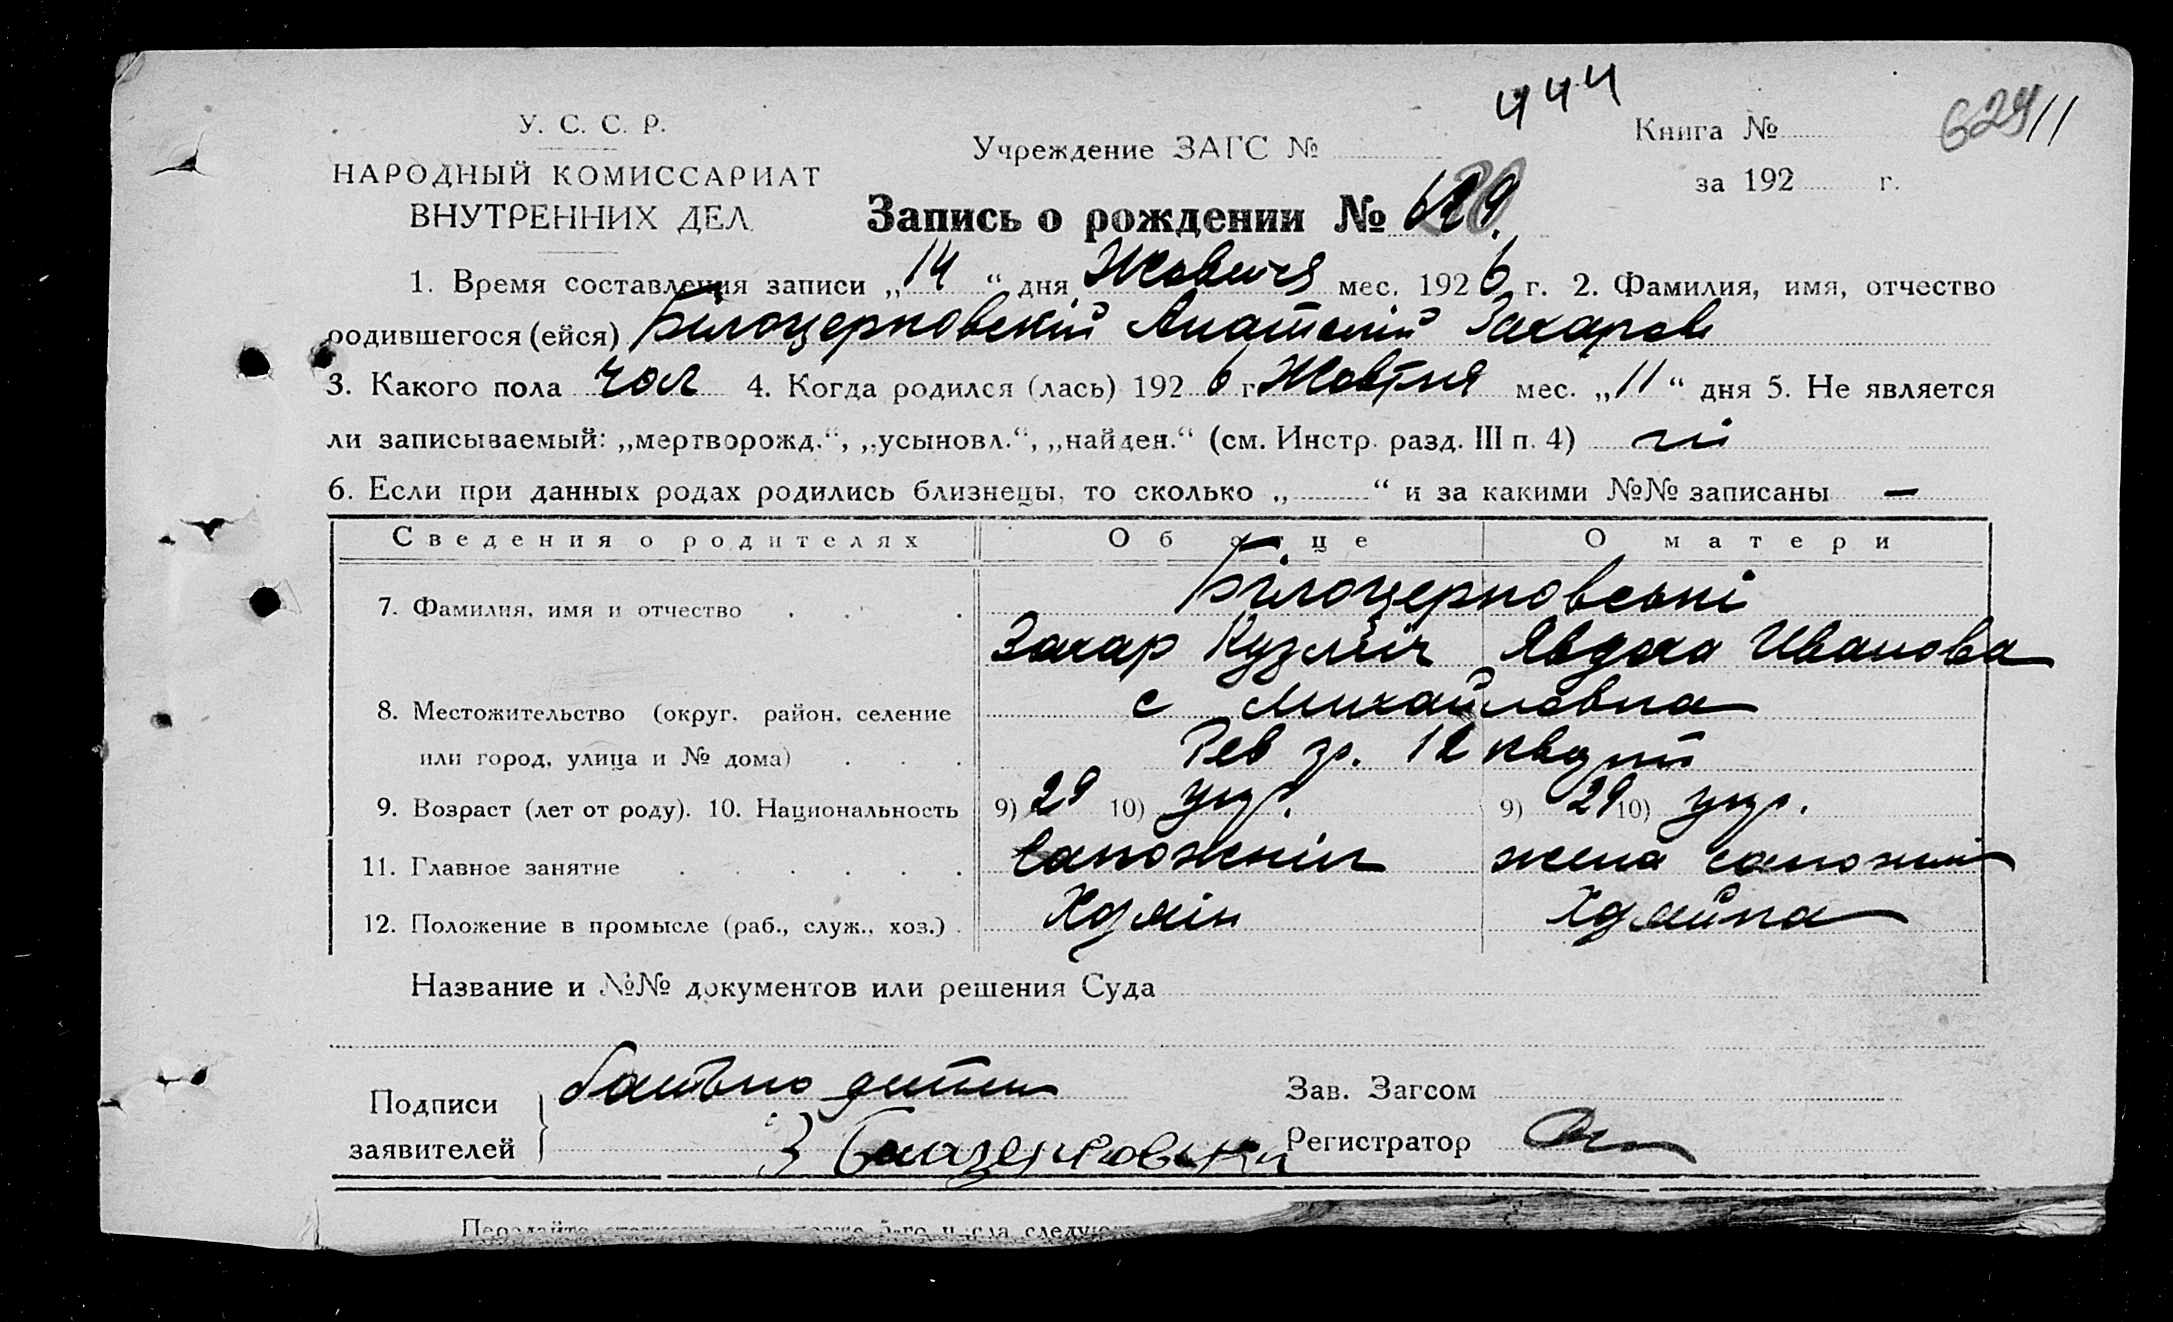 444
У. С. С. Р.
Учреждение ЗАГС №
Книга №
629 11
НАРОДНЫЙ КОМИССАРИАТ
ВНУТРЕННИХ ДЕЛ
за 192 г.
Запись о рождении № 629
1. Время составления записи „14“ дня Жовтня мес. 1926 г. 2. Фамилия, имя, отчество
родившегося (ейся) Білоцерковскій Анатолій Захаров
3. Какого пола чол 4. Когда родился (лась) 1926 г Жовтня мес. „11“ дня 5. Не является
ли записываемый: „мертворожд.“, „усыновл.“, „найден.“ (см. Инстр. разд. III п. 4) ні
6. Если при данных родах родились близнецы, то сколько „ “ и за какими №№ записаны —
Сведения о родителях О отце О матери
7. Фамилия, имя и отчество Білоцерковські
Захар Кузміч Явдоха Иванова
8. Местожительство (округ, район, селение с Михайловка
или город, улица и № дома) Рев 12
9. Возраст (лет от роду). 10. Национальность 9) 29 10) укр. 9) 29 10) укр.
11. Главное занятие Сапожнік жена сапожні
12. Положение в промысле (раб., служ., хоз.) Хозяін Хозяйка
Название и №№ документов или решения Суда
Подписи батько дитини
заявителей З
Зав. Загсом
Регистратор
5-го числа следую